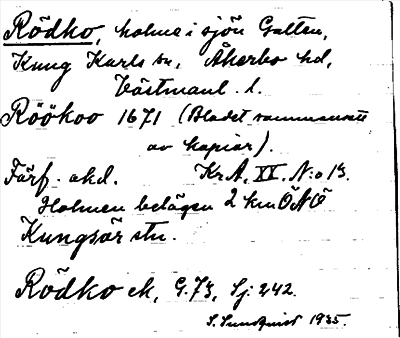 Rödko, holme i sjön Galten,
Kung Karls sn, Åkerbo hd,
Västmanl. l.
Röökoo 1671 (Bladet sammansatt
av kopior).
Förf. okd. Kr.A. XX. N:o 13.
Holmen belägen 2 km ÖNÖ
Kungsör stn.
Rödko ek, G.73, Sj: 242.
S. Sundqvist 1935.